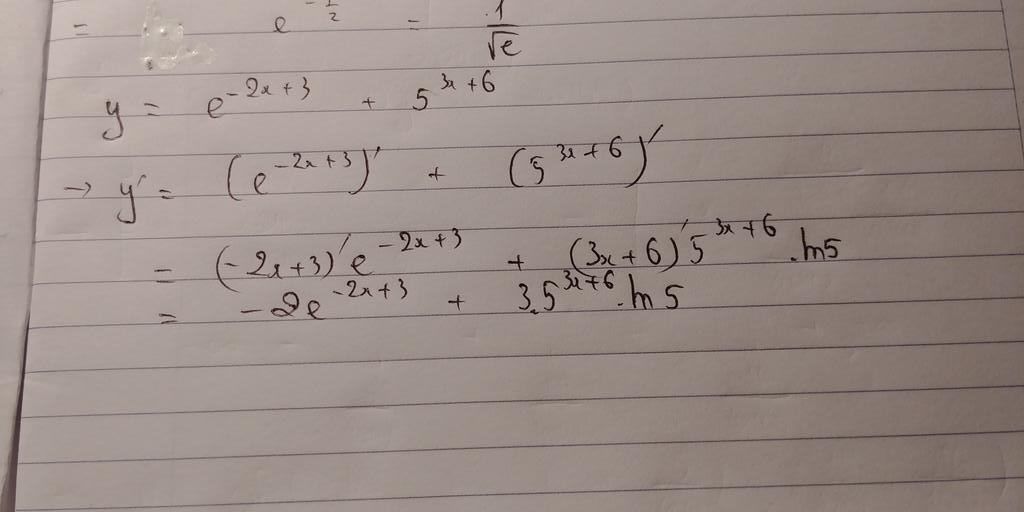 = e^{-1/2} = 1/√e
y = e^{-2x+3} + 5^{3x+6}
→ y' = (e^{-2x+3})' + (5^{3x+6})'
= (-2x+3)' e^{-2x+3} + (3x+6)' 5^{3x+6} . ln5
= -2e^{-2x+3} + 3.5^{3x+6} . ln 5